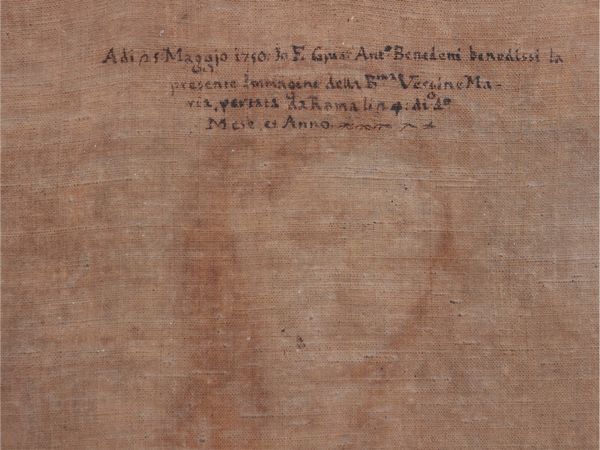 A di 25 Maggio 1750. Io F. Gius. Ant.º Benedeni benedissi la
presente Immagine della B.ma Vergine Ma-
ria, portata da Roma li 4. di dº
Mese, et Anno